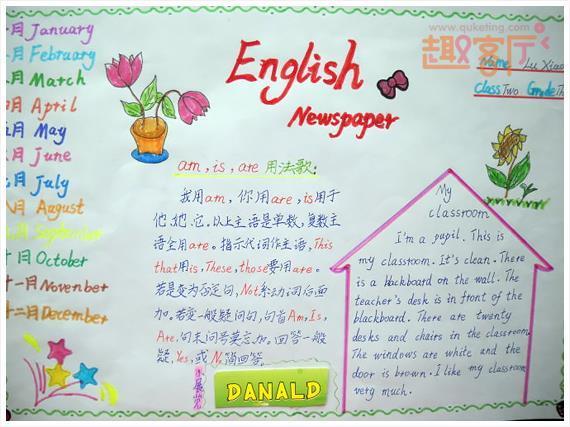 www.quketing.com
趣客厅
English
Newspaper
Name Lu Xiao
Class Two Grade Th
一月 January
二月 February
三月 March
四月 April
五月 May
六月 June
七月 July
八月 August
九月 September
十月 October
十一月 November
十二月 December
am, is, are 用法歌:
我用am, 你用are, is用于
他, 她, 它。以上主语是单数, 复数主
语全用are。指示代词作主语, This
that用is, These, those要用are。
若是变为否定句, Not系动词后面
加。若变一般疑问句, 句首Am, Is,
Are. 句末问号莫忘加。回答一般
疑, Yes, 或No简回答
DANALD
My
classroom
I'm a pupil. This is
my classroom. It's clean. There
is a blackboard on the wall. The
teacher's desk is in front of the
blackboard. There are twenty
desks and chairs in the classroom
The windows are white and the
door is brown. I like my classroom
very much.